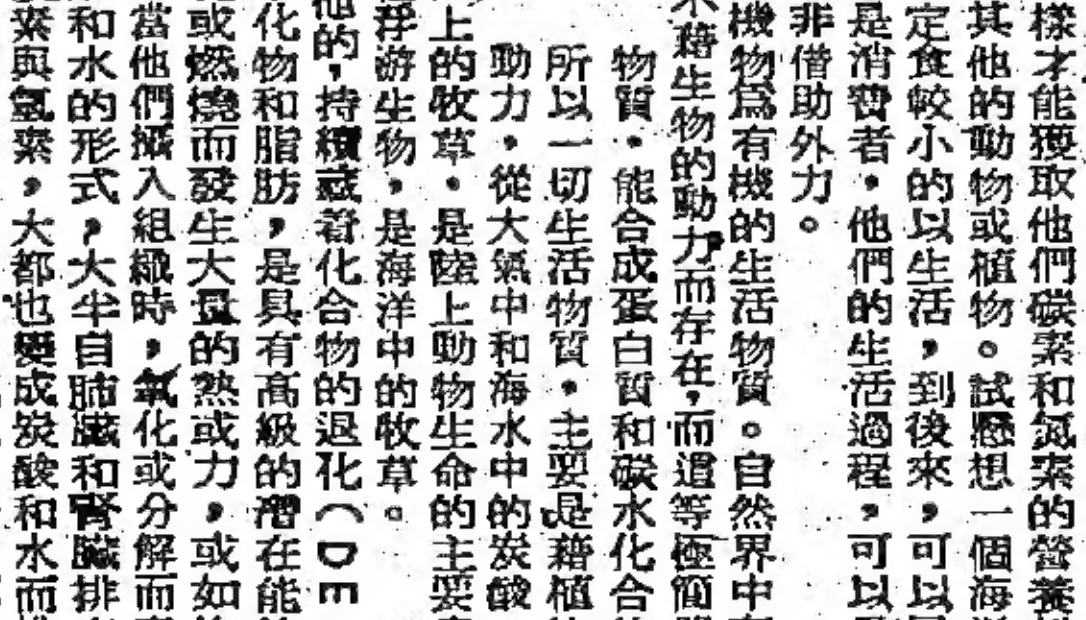 樣才能獲取他們碳素和氮素的營養
其他的動物或植物。試懸想一個海
定食較小的以生活，到後來，可以
是消費者，他們的生活過程，可以
非借助外力。
機物爲有機的生活物質。自然界中
藉生物的動力而存在，而這等極簡
物質，能合成蛋白質和碳水化合
所以一切生活物質，主要是藉植
動力，從大氣中和海水中的炭酸
上的牧草，是陸上動物生命的主要
浮游生物，是海洋中的牧草。
他的，持續或著化合物的退化（DE
化物和脂肪，是具有高級的潛在能
或燃燒而發生大量的熱或力，或如
當他們攝入組織時，氧化或分解而
和水的形式，大半自肺臟和腎臟排
素與氫素，大都也變成炭酸和水而